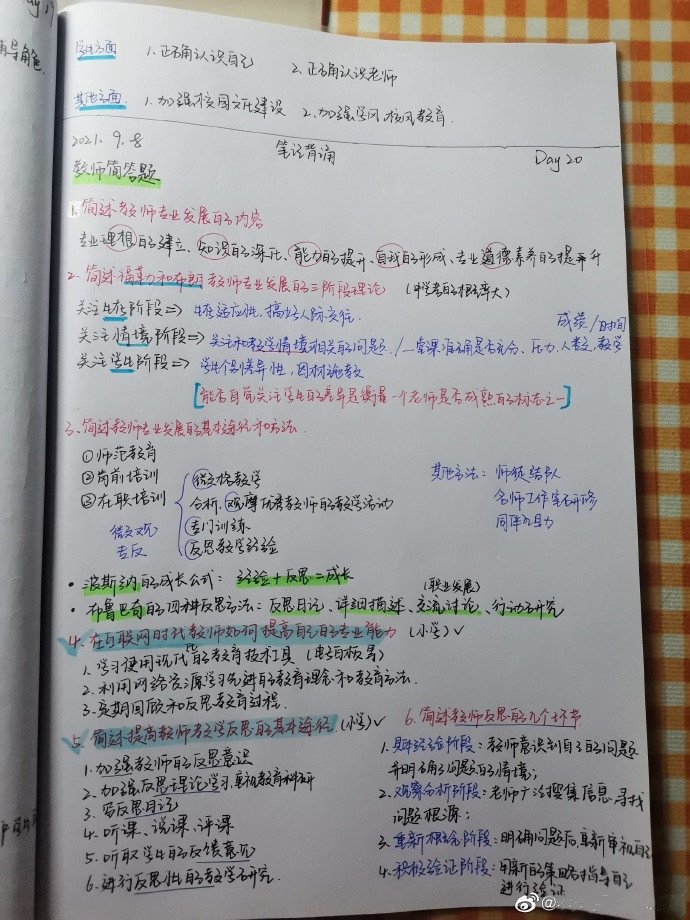 学生方面 1.正确认识自己 2.正确认识老师
其他方面 1.加强校园文化建设 2.加强学风校风教育.
2021.9.8 笔记背诵 Day 20
教师简答题
1.简述教师专业发展的内容
专业理想的建立、知识的深化、能力的提升、自我的形成、专业道德素养的提升
2.简述福勒和布朗教师专业发展的三阶段理论 (中学考的概率大)
关注生存阶段=> 生存适应性,搞好人际交往.
成绩/时间
关注情境阶段=> 关注和教学情境相关的问题./一堂课准确是否充分、压力、人数、教学
关注学生阶段=> 学生个别差异性,因材施教
[能否自觉关注学生的差异是衡量一个老师是否成熟的标志之一]
3.简述教师专业发展的基本途径和方法.
①师范教育
②岗前培训
③在职培训
微文观
专反
微格教学
分析、观摩优秀教师的教学活动
专门训练
反思教学经验
其他方法:师徒结队
名师工作室研修
同伴互助
·波斯纳的成长公式:经验+反思=成长
(职业发展)
·布鲁巴奇的四种反思方法:反思日记、详细描述、交流讨论、行动研究
4.在互联网时代教师如何提高自己的专业能力 (小学)√
1.学习使用现代的教育技术工具(电子白板等)
2.利用网络资源学习先进的教育理念和教育方法.
3.定期回顾和反思教育过程.
5.简述提高教师教学反思的基本途径(小学)√
1.加强教师的反思意识
2.加强反思理论学习,重视教育科研
3.写反思日记
4.听课、说课、评课
5.听取学生的反馈意见
6.进行反思性的教学研究.
6.简述教师反思的几个环节
1.具体经验阶段:教师意识到自己的问题
并明确问题的情境;
2.观察分析阶段:老师广泛搜集信息,寻找
问题根源;
3.重新概念阶段:明确问题后,重新审视自己
4.积极验证阶段:用新的策略指导自己
进行验证